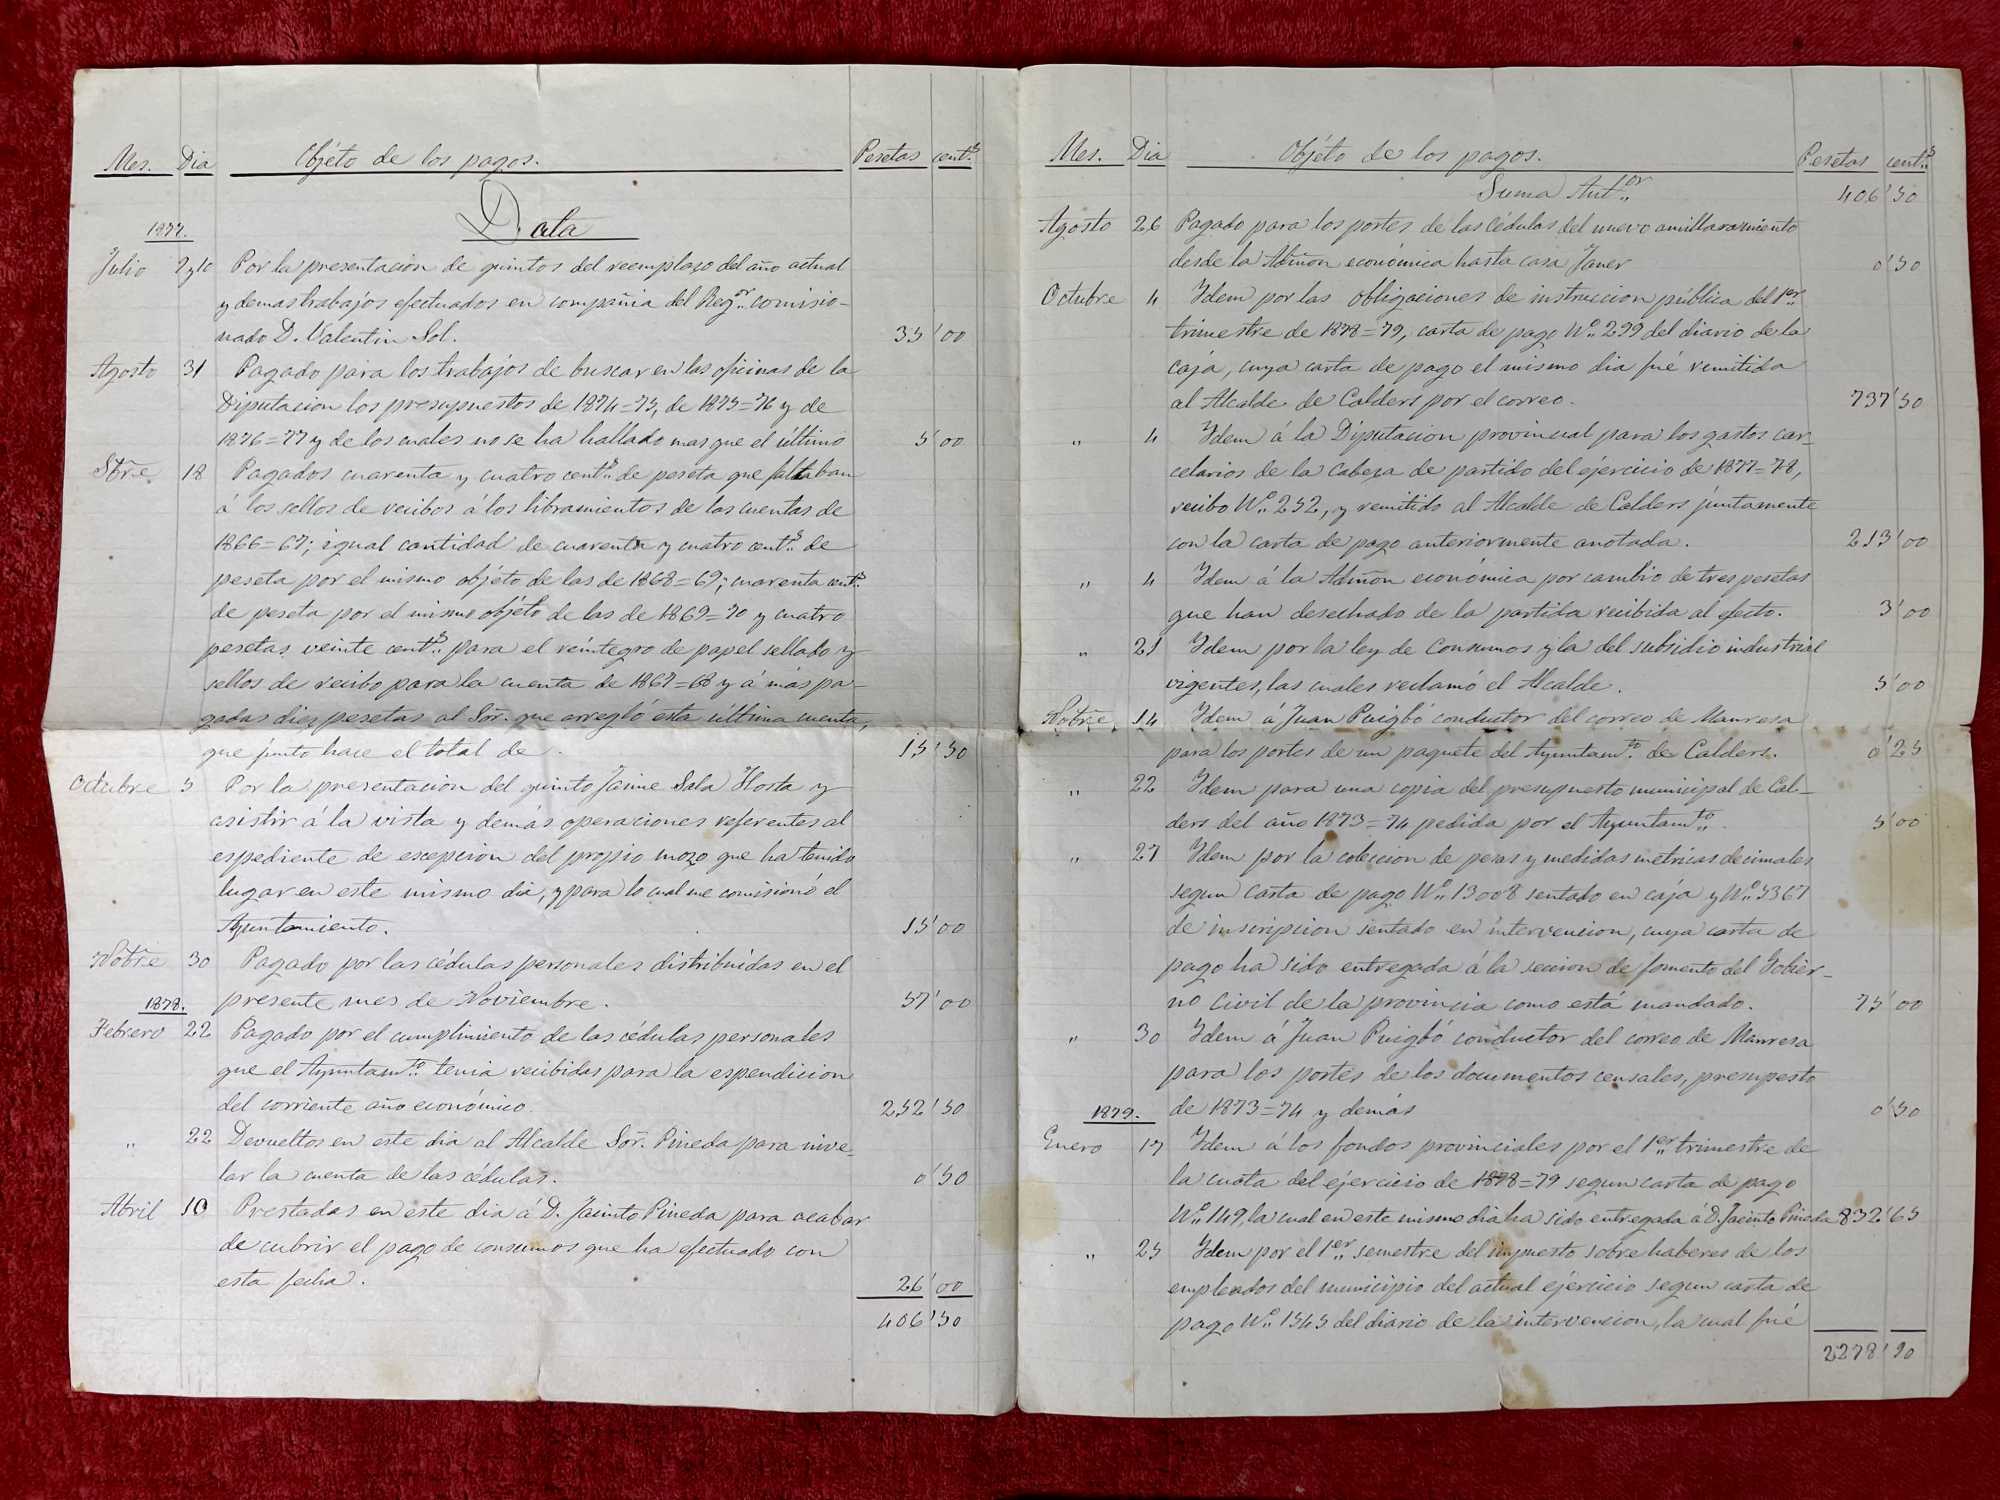 Mes. Dia Objéto de los pagos. Pesetas cent.s
Data
1877.
Julio 9 y 10 Por la presentacion de quintos del reemplazo del año actual
y demas trabajos efectuados en compañia del Reg.or comisio-
nado D. Valentin Sol. 35'00
Agosto 31 Pagado para los trabajos de buscar en las oficinas de la
Diputacion los presupuestos de 1874=75, de 1875=76 y de
1876=77 y de los cuales no se ha hallado mas que el último 5'00
Sbre. 18 Pagados cuarenta y cuatro cent.s de peseta que faltaban
á los sellos de recibos á los libramientos de las cuentas de
1866=67; igual cantidad de cuarenta y cuatro cent.s de
peseta por el mismo objéto de las de 1868=69; cuarenta cent.s
de peseta por el mismo objéto de las de 1869=70 y cuatro
pesetas veinte cent.s para el reintegro de papel sellado y
sellos de recibo para la cuenta de 1867=68 y á más pa-
gadas diez pesetas al Sőr. que arregló esta última cuenta,
que junto hace el total de . 15'50
Octubre 5 Por la presentacion del quinto Jaime Sala Horta y
asistir á la vista y demás operaciones referentes al
espediente de escepcion del propio mozo que ha tenido
lugar en este mismo dia, y para lo cual me comisionó el
Ayuntamiento. 15'00
Nobre 30 Pagado por las cédulas personales distribuidas en el
presente mes de Noviembre. 57'00
1878.
Febrero 22 Pagado por el cumplimiento de las cédulas personales
que el Ayuntam.to tenia recibidas para la espendicion
del corriente año económico. 252'50
" 22 Devueltos en este dia al Alcalde Sőr. Pineda para nive-
lar la cuenta de las cédulas. 0'50
Abril 10 Prestadas en este dia á D. Jacinto Pineda para acabar
de cubrir el pago de consumos que ha efectuado con
esta fecha. 26'00
406'50
Mes. Dia Objéto de los pagos. Pesetas cent.s
Suma Ant.or 406'50
Agosto 26 Pagado para los portes de las cédulas del nuevo amillaramiento
desde la Admon económica hasta casa Janer 0'50
Octubre 4 Idem por las obligaciones de instruccion pública del 1.er
trimestre de 1878=79, carta de pago N.o 299 del diario de la
cája, cuya carta de pago el mismo dia fué remitida
al Alcalde de Calders por el correo. 737'50
" 4 Idem á la Diputacion provincial para los gastos car-
celarios de la cabeza de partido del ejercicio de 1877=78,
recibo N.o 252, y remitido al Alcalde de Calders juntamente
con la carta de pago anteriormente anotada. 213'00
" 4 Idem á la Admon económica por cambio de tres pesetas
que han desechado de la partida recibida al efecto. 3'00
" 21 Idem por la ley de Consumos y la del subsidio industrial
vigentes, las cuales reclamó el Alcalde. 5'00
Nobre. 14 Idem á Juan Puigbó conductor del correo de Manresa
para los portes de un paquete del Ayuntam.to de Calders. 0'25
" 22 Idem para una copia del presupuesto municipal de Cal-
ders del año 1873=74 pedida por el Ayuntam.to. 5'00
" 27 Idem por la coleccion de pesas y medidas métricas decimales
segun carta de pago N.o 13008 sentado en cája y N.o 5367
de inscripcion sentado en intervencion, cuya carta de
pago ha sido entregada á la seccion de fomento del Gobier-
no Civil de la provincia como está mandado. 75'00
" 30 Idem á Juan Puigbó conductor del correo de Manresa
para los portes de los documentos censales, presupesto
de 1873=74 y demás 0'50
1879.
Enero 17 Idem á los fondos provinciales por el 1.er trimestre de
la cuota del ejercicio de 1878=79 segun carta de pago
N.o 149, la cual en este mismo dia ha sido entregada á D. Jacinto Pineda 832'65
" 25 Idem por el 1.er semestre del impuesto sobre haberes de los
empleados del municipio del actual ejercicio segun carta de
pago N.o 1545 del diario de la intervencion, la cual fué
2278'90